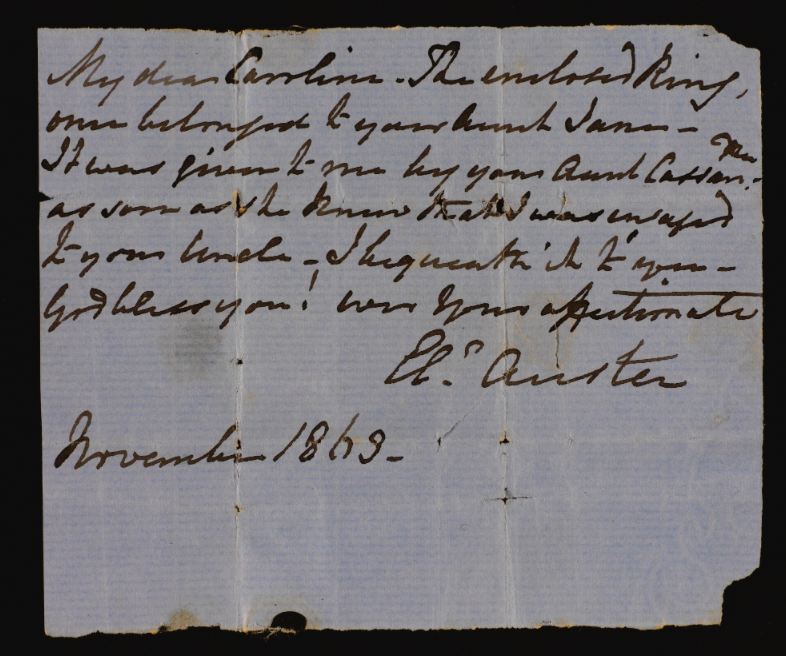 My dear Caroline - The enclosed Ring,
once belonged to your Aunt Jane -
It was given to me by your Aunt Cassandra
as soon as she knew that I was engaged
to your Uncle - I bequeath it to you -
God bless you! ever Your affectionate
Elr. Austen
November 1863 -